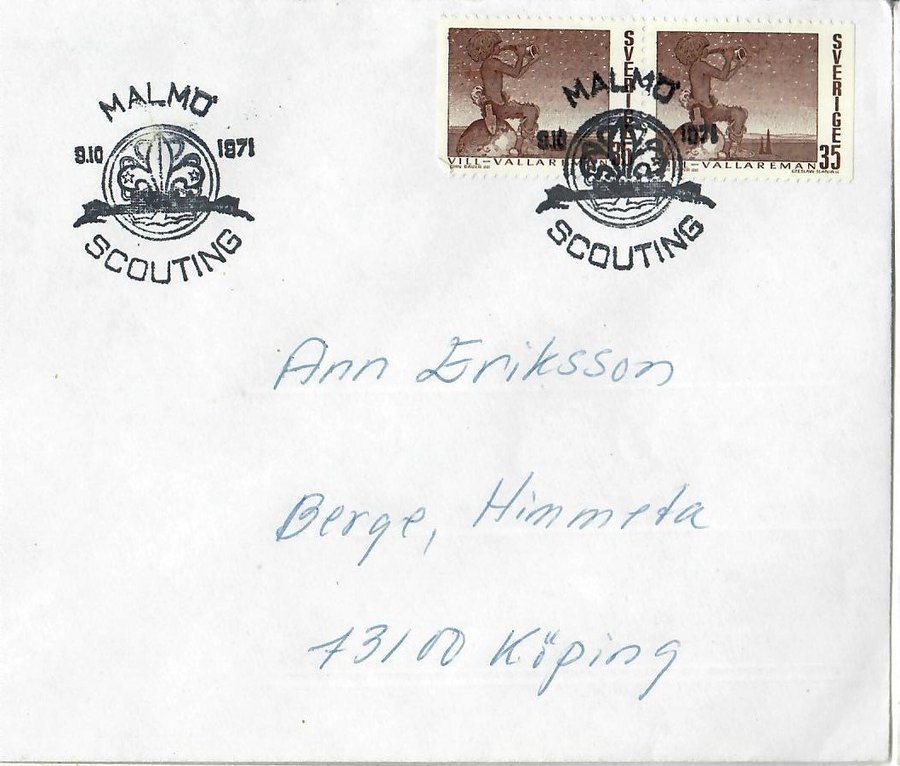 MALMÖ
9.10 1971
SCOUTING
SVERIGE
35
VILL-VALLAREMAN
JOHN BAUER
SVERIGE
35
VALLAREMAN
CZESLAW SLANIA
MALMÖ
9.10 1971
SCOUTING
Ann Eriksson
Berge, Himmeta
73100 Köping